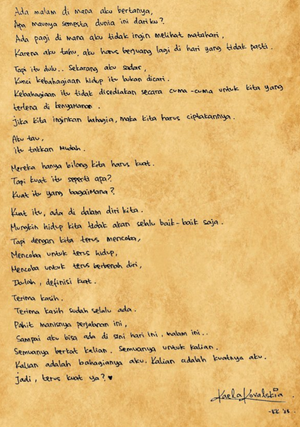 Ada malam di mana aku bertanya,
Apa maunya semesta dunia ini dariku?
Ada pagi di mana aku tidak ingin melihat matahari,
Karena aku tahu, aku harus berjuang lagi di hari yang tidak pasti.
Tapi itu dulu.. Sekarang aku sadar,
Kunci kebahagiaan hidup itu bukan dicari.
Kebahagiaan itu tidak disediakan secara cuma-cuma untuk kita yang
terlena di kenyamanan.
Jika kita inginkan bahagia, maka kita harus ciptakannya.
Aku tau,
Itu takkan mudah.
Mereka hanya bilang kita harus kuat.
Tapi kuat itu seperti apa?
Kuat itu yang bagaimana?
Kuat itu, ada di dalam diri kita.
Mungkin hidup kita tidak akan selalu baik-baik saja.
Tapi dengan kita terus mencoba,
Mencoba untuk terus hidup,
Mencoba untuk terus berbenah diri,
Itulah, definisi kuat.
Terima kasih.
Terima kasih sudah selalu ada.
Pahit manisnya perjalanan ini,
Sampai aku bisa ada di sini hari ini, malam ini..
Semuanya berkat kalian, semuanya untuk kalian.
Kalian adalah bahagianya aku. Kalian adalah kuatnya aku.
Jadi, terus kuat ya? ♥
Kaela Kovalskia